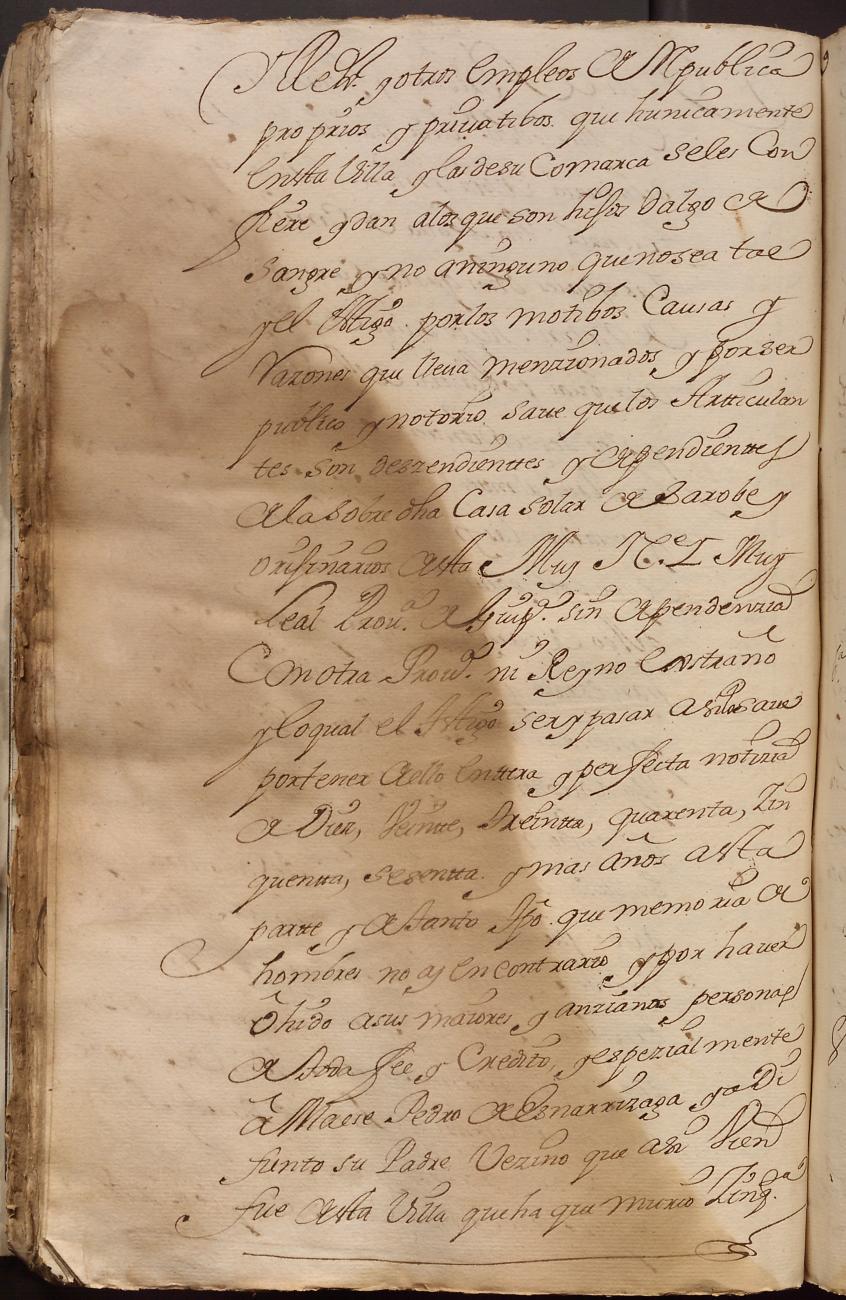 y otros empleos de Republica
proprios y priuatibos que hunicamente
en esta Villa y las de su Comarca se les Con
fiere y dan a los que son hijos dalgo de
Sangre y no a ninguno que no sea tal
y el testigo por los motibos Causas y
razones que lleua menzionados y por ser
publico y notorio saue que los Articulan
tes son deszendientes y dependientes
de la sobre dha Casa solar de Barobe y
orijinarios desta Muy N. e L Muy
leal Prou.ª de Guip.ª sin dependenzia
Con otra Prou.ª ni Reyno Enstraño
y lo qual el testigo ser y pasar asi lo saue
por tener dello Enttera y perfecta notizia
de Diez, Veinte, treintta, quarenta, Zin
quentta, sesentta y mas años a esta
partte y de tanto tpo que memoria de
hombres no ay En contrario y por hauer
ôhido a sus maiores y anzianos personas
de toda fee y Credito, y espezialmente
â Maese Pedro de Esnarrizaga ya Di
funto su Padre Vezino que asi vien
fue desta Villa que ha que murio Zinq.ª